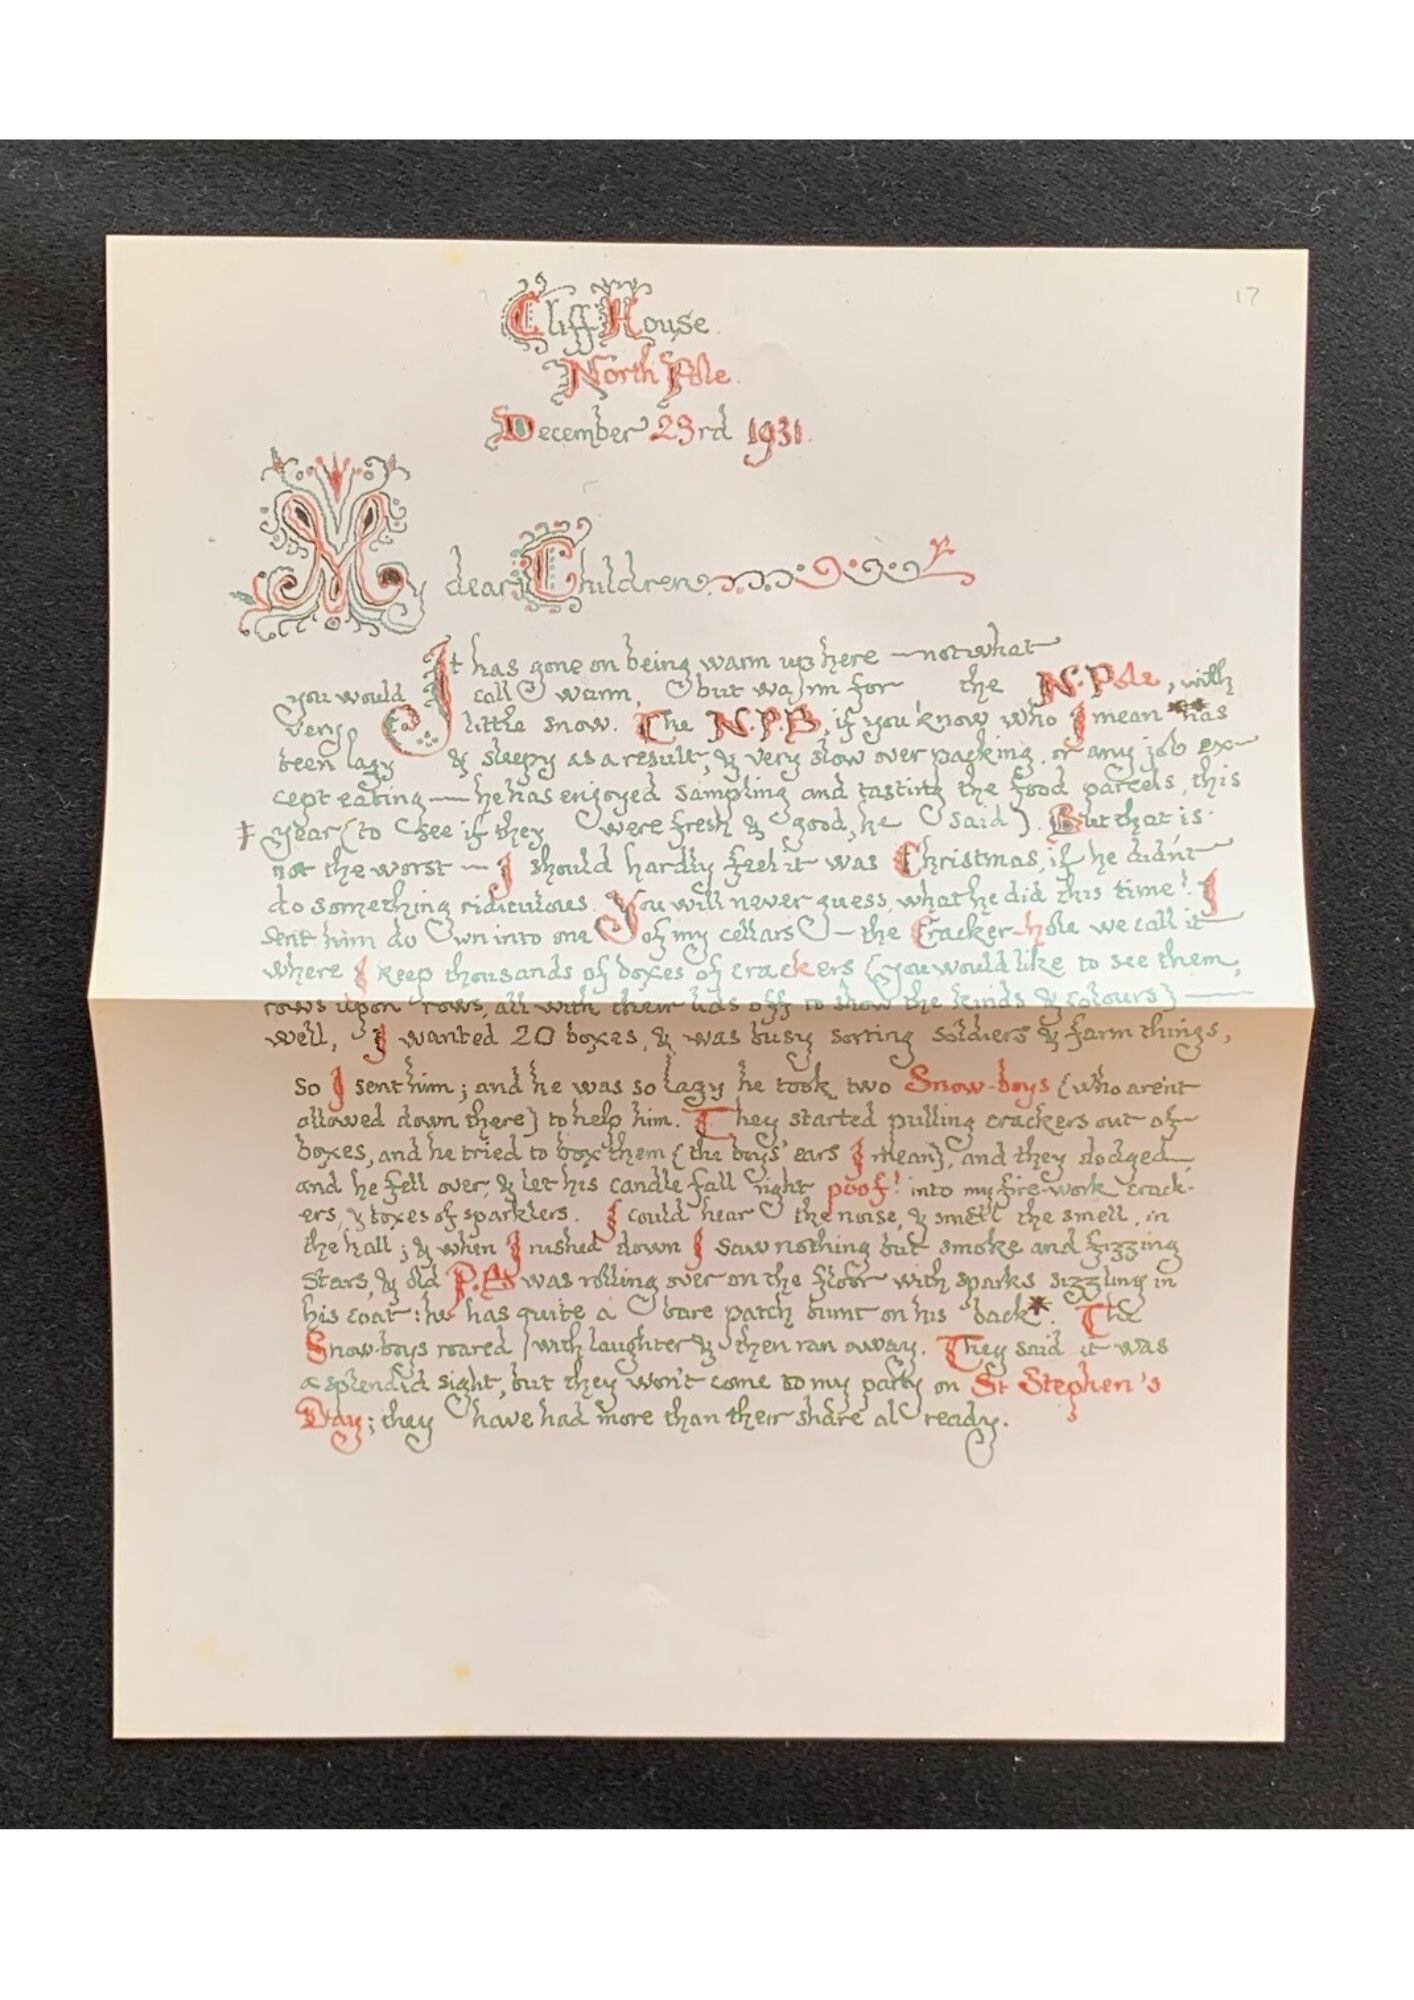 17
Cliff House.
North Pole.
December 23rd 1931.
My dear Children.
It has gone on being warm up here — not what
you would call warm, but warm for the N. Pole, with
very little snow. The N.P.B, if you know who I mean ** has
been lazy & sleepy as a result, & very slow over packing, or any job ex-
cept eating — he has enjoyed sampling and tasting the food parcels, this
‡ year (to see if they were fresh & good, he said). But that is
not the worst — I should hardly feel it was Christmas, if he didn't
do something ridiculous. You will never guess, what he did this time! I
sent him down into one of my cellars — the Cracker-hole we call it
where I keep thousands of boxes of crackers (you would like to see them,
rows upon rows, all with their lids off to show the kinds & colours) —
well, I wanted 20 boxes, & was busy sorting soldiers & farm things,
so I sent him; and he was so lazy he took two Snow-boys (who aren't
allowed down there) to help him. They started pulling crackers out of
boxes, and he tried to box them (the boys' ears I mean), and they dodged
and he fell over, & let his candle fall right poof! into my fire-work crack-
ers, & boxes of sparklers. I could hear the noise, & smell the smell, in
the hall; & when I rushed down I saw nothing but smoke and fizzing
stars, & old P.B was rolling over on the floor with sparks sizzling in
his coat: he has quite a bare patch burnt on his back *. The
Snow-boys roared with laughter & then ran away. They said it was
a splendid sight, but they won't come to my party on St Stephen's
Day; they have had more than their share already.